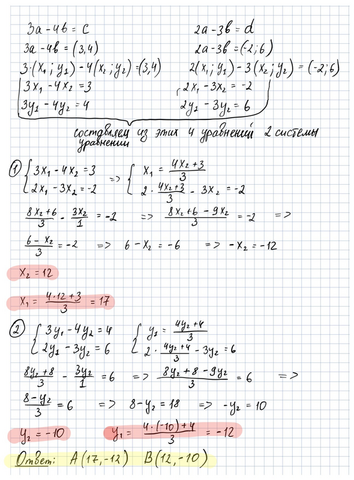 3a - 4b = c 2a - 3b = d
3a - 4b = (3,4) 2a - 3b = (-2; 6)
3·(x₁; y₁) - 4(x₂; y₂) = (3,4) 2(x₁; y₁) - 3(x₂; y₂) = (-2; 6)
3x₁ - 4x₂ = 3 2x₁ - 3x₂ = -2
3y₁ - 4y₂ = 4 2y₁ - 3y₂ = 6
составляем из этих 4 уравнений 2 системы
уравнений
① { 3x₁ - 4x₂ = 3 => { x₁ = (4x₂+3)/3
2x₁ - 3x₂ = -2 2·(4x₂+3)/3 - 3x₂ = -2
(8x₂+6)/3 - 3x₂/1 = -2 => (8x₂+6-9x₂)/3 = -2 =>
(6-x₂)/3 = -2 => 6 - x₂ = -6 => -x₂ = -12
x₂ = 12
x₁ = (4·12+3)/3 = 17
② { 3y₁ - 4y₂ = 4 { y₁ = (4y₂+4)/3
2y₁ - 3y₂ = 6 2·(4y₂+4)/3 - 3y₂ = 6
(8y₂+8)/3 - 3y₂/1 = 6 => (8y₂+8-9y₂)/3 = 6 =>
(8-y₂)/3 = 6 => 8 - y₂ = 18 => -y₂ = 10
y₂ = -10 y₁ = (4·(-10)+4)/3 = -12
Ответ: A(17,-12) B(12,-10)